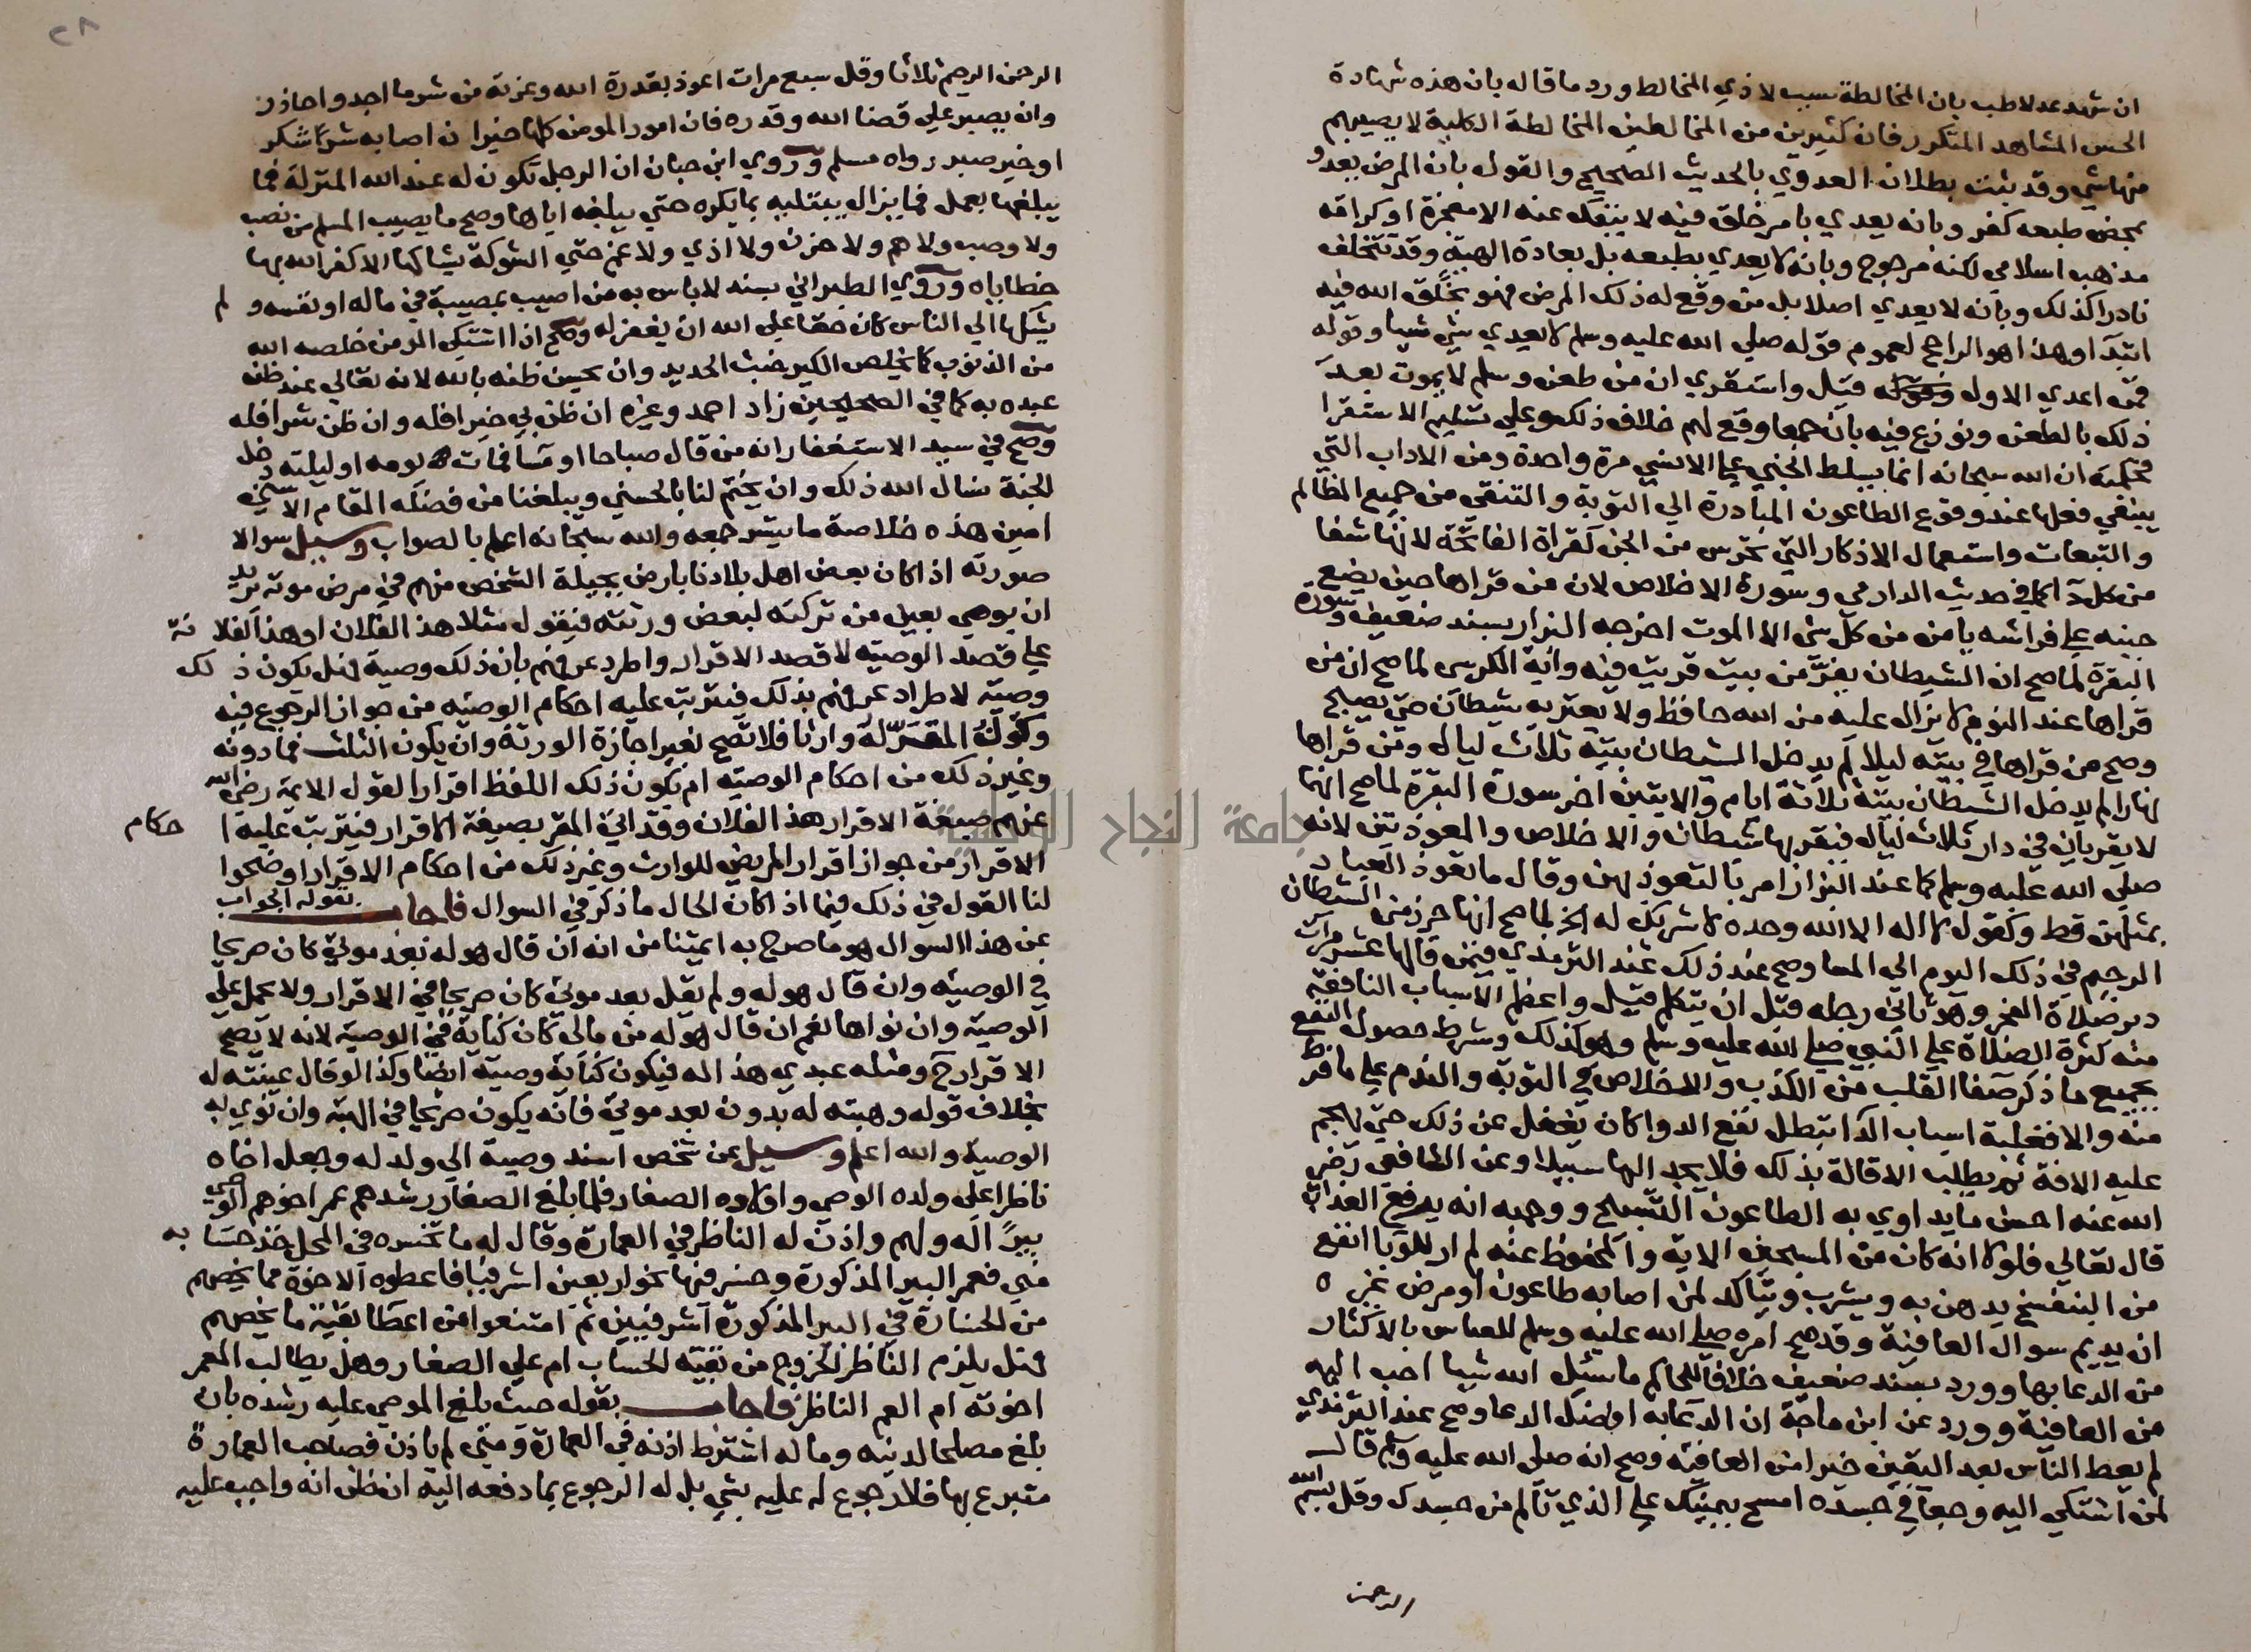 ان شهد عدلا طب بان المخالطة سبب لا ذي المخالط ورد ما قاله بان هذه شهادة
الحس المشاهد المتكرر فان كثيرين من المخالطين المخالطة الكلية لا يصيبهم
منها شي وقد ثبت بطلان العدوي بالحديث الصحيح والقول بان المرض يعدو
بمحض طبعه كفر وبانه يعدي بامر خلق فيه لا ينفك عنه الا معجزة او كرامة
مذهب اسلامي لكنه مرجوح وبانه لا يعدي بطبعه بل بعادة الهية وقد تتخلف
نادرا كذلك وبانه لا يعدي اصلا بل من وقع له ذلك المرض فهو بخلق الله فيه
ابتدا وهذا هو الراجح لعموم قوله صلي الله عليه وسلم لا يعدي شي شيا وقوله
فمن اعدي الاول قيل واستقري ان من طعن وسلم لا يموت بعد
ذلك بالطعن ونوزع فيه بان جمعا وقع لهم خلاف ذلك وعلي تسليم الاستقرا
فحكمته ان الله سبحانه انما يسلط الجني علي الانسي مرة واحدة ومن الاداب التي
ينبغي فعلها عند وقوع الطاعون المبادرة الي التوبة والتنقي من جميع المظالم
والتبعات واستعمال الاذكار التي تحرس من الجن كقراة الفاتحة لانها شفا
من كل دا كما في حديث الدارمي وسورة الاخلاص لان من قراها حين يضع
جنبه علي فراشه يامن من كل شي الا الموت اخرجه البزار بسند ضعيف وسورة
البقرة لما صح ان الشيطان يفر من بيت قريت فيه واية الكرسي لما صح ان من
قراها عند النوم لا يزال عليه من الله حافظ ولا يعتريه شيطان حتي يصبح
وصح من قراها في بيته ليلا لم يدخل الشيطان بيته ثلاث ليال ومن قراها
نهارا لم يدخل الشيطان بيته ثلاثة ايام والايتين اخر سورة البقرة لما صح انهما
لا يقريان في دار ثلاث ليال فيقربها شيطان والاخلاص والمعوذتين لانه
صلي الله عليه وسلم كما عند البزار امر بالتعوذ بهن وقال ما تعوذ العباد
بمثلهن قط وكقول لا اله الا الله وحده لا شريك له الخ لما صح انها حرز من الشيطان
الرجيم في ذلك اليوم الي المسا وصح عند ذلك عند الترمذي فيمن قالها عشر مرات
دبر صلاة الفجر وهو ثاني رجله قبل ان يتكلم قيل واعظم الاسباب النافعة
منه كثرة الصلاة علي النبي صلي الله عليه وسلم وهو كذلك وشرط حصول النفع
بجميع ما ذكر صفا القلب من الكذب والاخلاص في التوبة والندم علي ما فرط
منه والا فغلبة اسباب الدا تبطل نفع الدوا كان يغفل عن ذلك حتي تهجم
عليه الافة ثم يطلب الاقالة بذلك فلا يجد اليها سبيلا وعن الشافعي رضي
الله عنه احسن ما يداوي به الطاعون التسبيح ووجهه انه يدفع العذاب
قال تعالي فلولا انه كان من المسبحين الاية والمحفوظ عنه لم ار للوبا انفع
من البنفسج يدهن به ويشرب ويتاكد لمن اصابه طاعون او مرض غيره
ان يديم سوال العافية وقد صح امره صلي الله عليه وسلم للعباس بالاكثار
من الدعا بها وورد بسند ضعيف خلافا للحاكم ما سئل الله شيا احب اليه
من العافية وورد عن ابن ماجة ان الدعا به افضل الدعا وصح عند الترمذي
لم يعط الناس بعد اليقين خيرا من العافية وصح انه صلي الله عليه وسلم قال
لمن اشتكي اليه وجعا في جسده امسح بيمينك علي الذي تالم من جسدك وقل بسم الله
الرحمن
٢٨
الرحمن الرحيم ثلاثا وقل سبع مرات اعوذ بقدرة الله وعزته من شر ما اجد واحاذر
وان يصبر علي قضا الله وقدره فان امور المومن كلها خير ان اصابه شر شكر
او خير صبر رواه مسلم وروي ابن حبان ان الرجل تكون له عند الله المنزلة فما
يبلغها بعمل فما يزال يبتليه بما يكره حتي يبلغه اياها وصح ما يصيب المسلم من نصب
ولا وصب ولا هم ولا حزن ولا اذي ولا غم حتي الشوكة يشاكها الا كفر الله بها
خطاياه وروي الطبراني بسند لا باس به من اصيب بمصيبة في ماله او نفسه ولم
يشكها الي الناس كان حقا علي الله ان يغفر له وصح اذا اشتكي المومن خلصه الله
من الذنوب كما يخلص الكير خبث الحديد وان يحسن ظنه بالله لانه تعالي عند ظن
عبده به كما في الصحيحين زاد احمد وغيره ان ظن بي خيرا فله وان ظن شرا فله
وصح في سيد الاستغفار انه من قال صباحا او مسا فمات يومه او ليلته دخل
الجنة نسال الله ذلك وان يختم لنا بالحسني ويبلغنا من فضله المقام الاسني
امين هذه خلاصة ما تيسر جمعه والله سبحانه اعلم بالصواب وسيل سوالا
صورته اذا كان بعض اهل بلادنا بارض بجيلة الشخص منهم في مرض موته يريد
ان يوصي بعين من تركته لبعض ورثته فيقول مثلا هذا الفلان او هذا لفلانة
علي قصد الوصية لا قصد الاقرار واطرد عرفهم بان ذلك وصية فهل يكون ذلك
وصية لاطراد عرفهم بذلك فيترتب عليه احكام الوصية من جواز الرجوع فيه
وكون المقر له وارثا فلا تصح لغير اجازة الورثة وان يكون الثلث فما دونه
وغير ذلك من احكام الوصية ام يكون ذلك اللفظ اقرارا لقول الايمة رضي الله
عنهم صيغة الاقرار هذا الفلان وقد اتي المقر بصيغة الاقرار فيترتب عليه احكام
الاقرار من جواز اقرار المريض للوارث وغير ذلك من احكام الاقرار اوضحوا
لنا القول في ذلك فيما اذا كان الحال ما ذكر في السوال فاجاب بقوله الجواب
عن هذا السوال هو ما صرح به ايمتنا من انه ان قال هو له بعد موتي كان صريحا
في الوصية وان قال هو له ولم يقل بعد موتي كان صريحا في الاقرار ولا يحمل علي
الوصية وان نواها نعم ان قال هو له من مالي كان كناية في الوصية لانه لا يصح
الاقرار ح ومثله عبدي هذا له فيكون كناية وصية ايضا وكذا لو قال عينته له
بخلاف قوله وهبته له بدون بعد موتي فانه يكون صريحا في الهبة وان نوي به
الوصية والله اعلم وسيل عن شخص اسند وصية الي ولد له وجعل اخاه
ناظرا علي ولده الوصي واولاده الصغار فلما بلغ الصغار رشدهم عمر اخوهم الوصي
بيرا له ولهم واذن له الناظر في العمارة وقال له ما تخسره في المحل خذ حسابه
مني فعمر البير المذكورة وخسر فيها نحو اربعين اشرفيا فاعطوه الاخوة مما يخصهم
من الخسارة في البير المذكورة اشرفيين ثم امتنعوا من اعطا بقية ما يخصهم
فهل يلزم الناظر الخروج من بقية الحساب ام علي الصغار وهل يطالب المعمر
اخوته ام العم الناظر فاجاب بقوله حيث بلغ الموصي عليه رشده بان
بلغ مصلحا لدينه وماله اشترط اذنه في العمارة ومتي لم ياذن فصاحب العمارة
متبرع بها فلا رجوع له عليه بشي بل له الرجوع بما دفعه اليه ان ظن انه واجب عليه
جامعة النجاح الوطنية